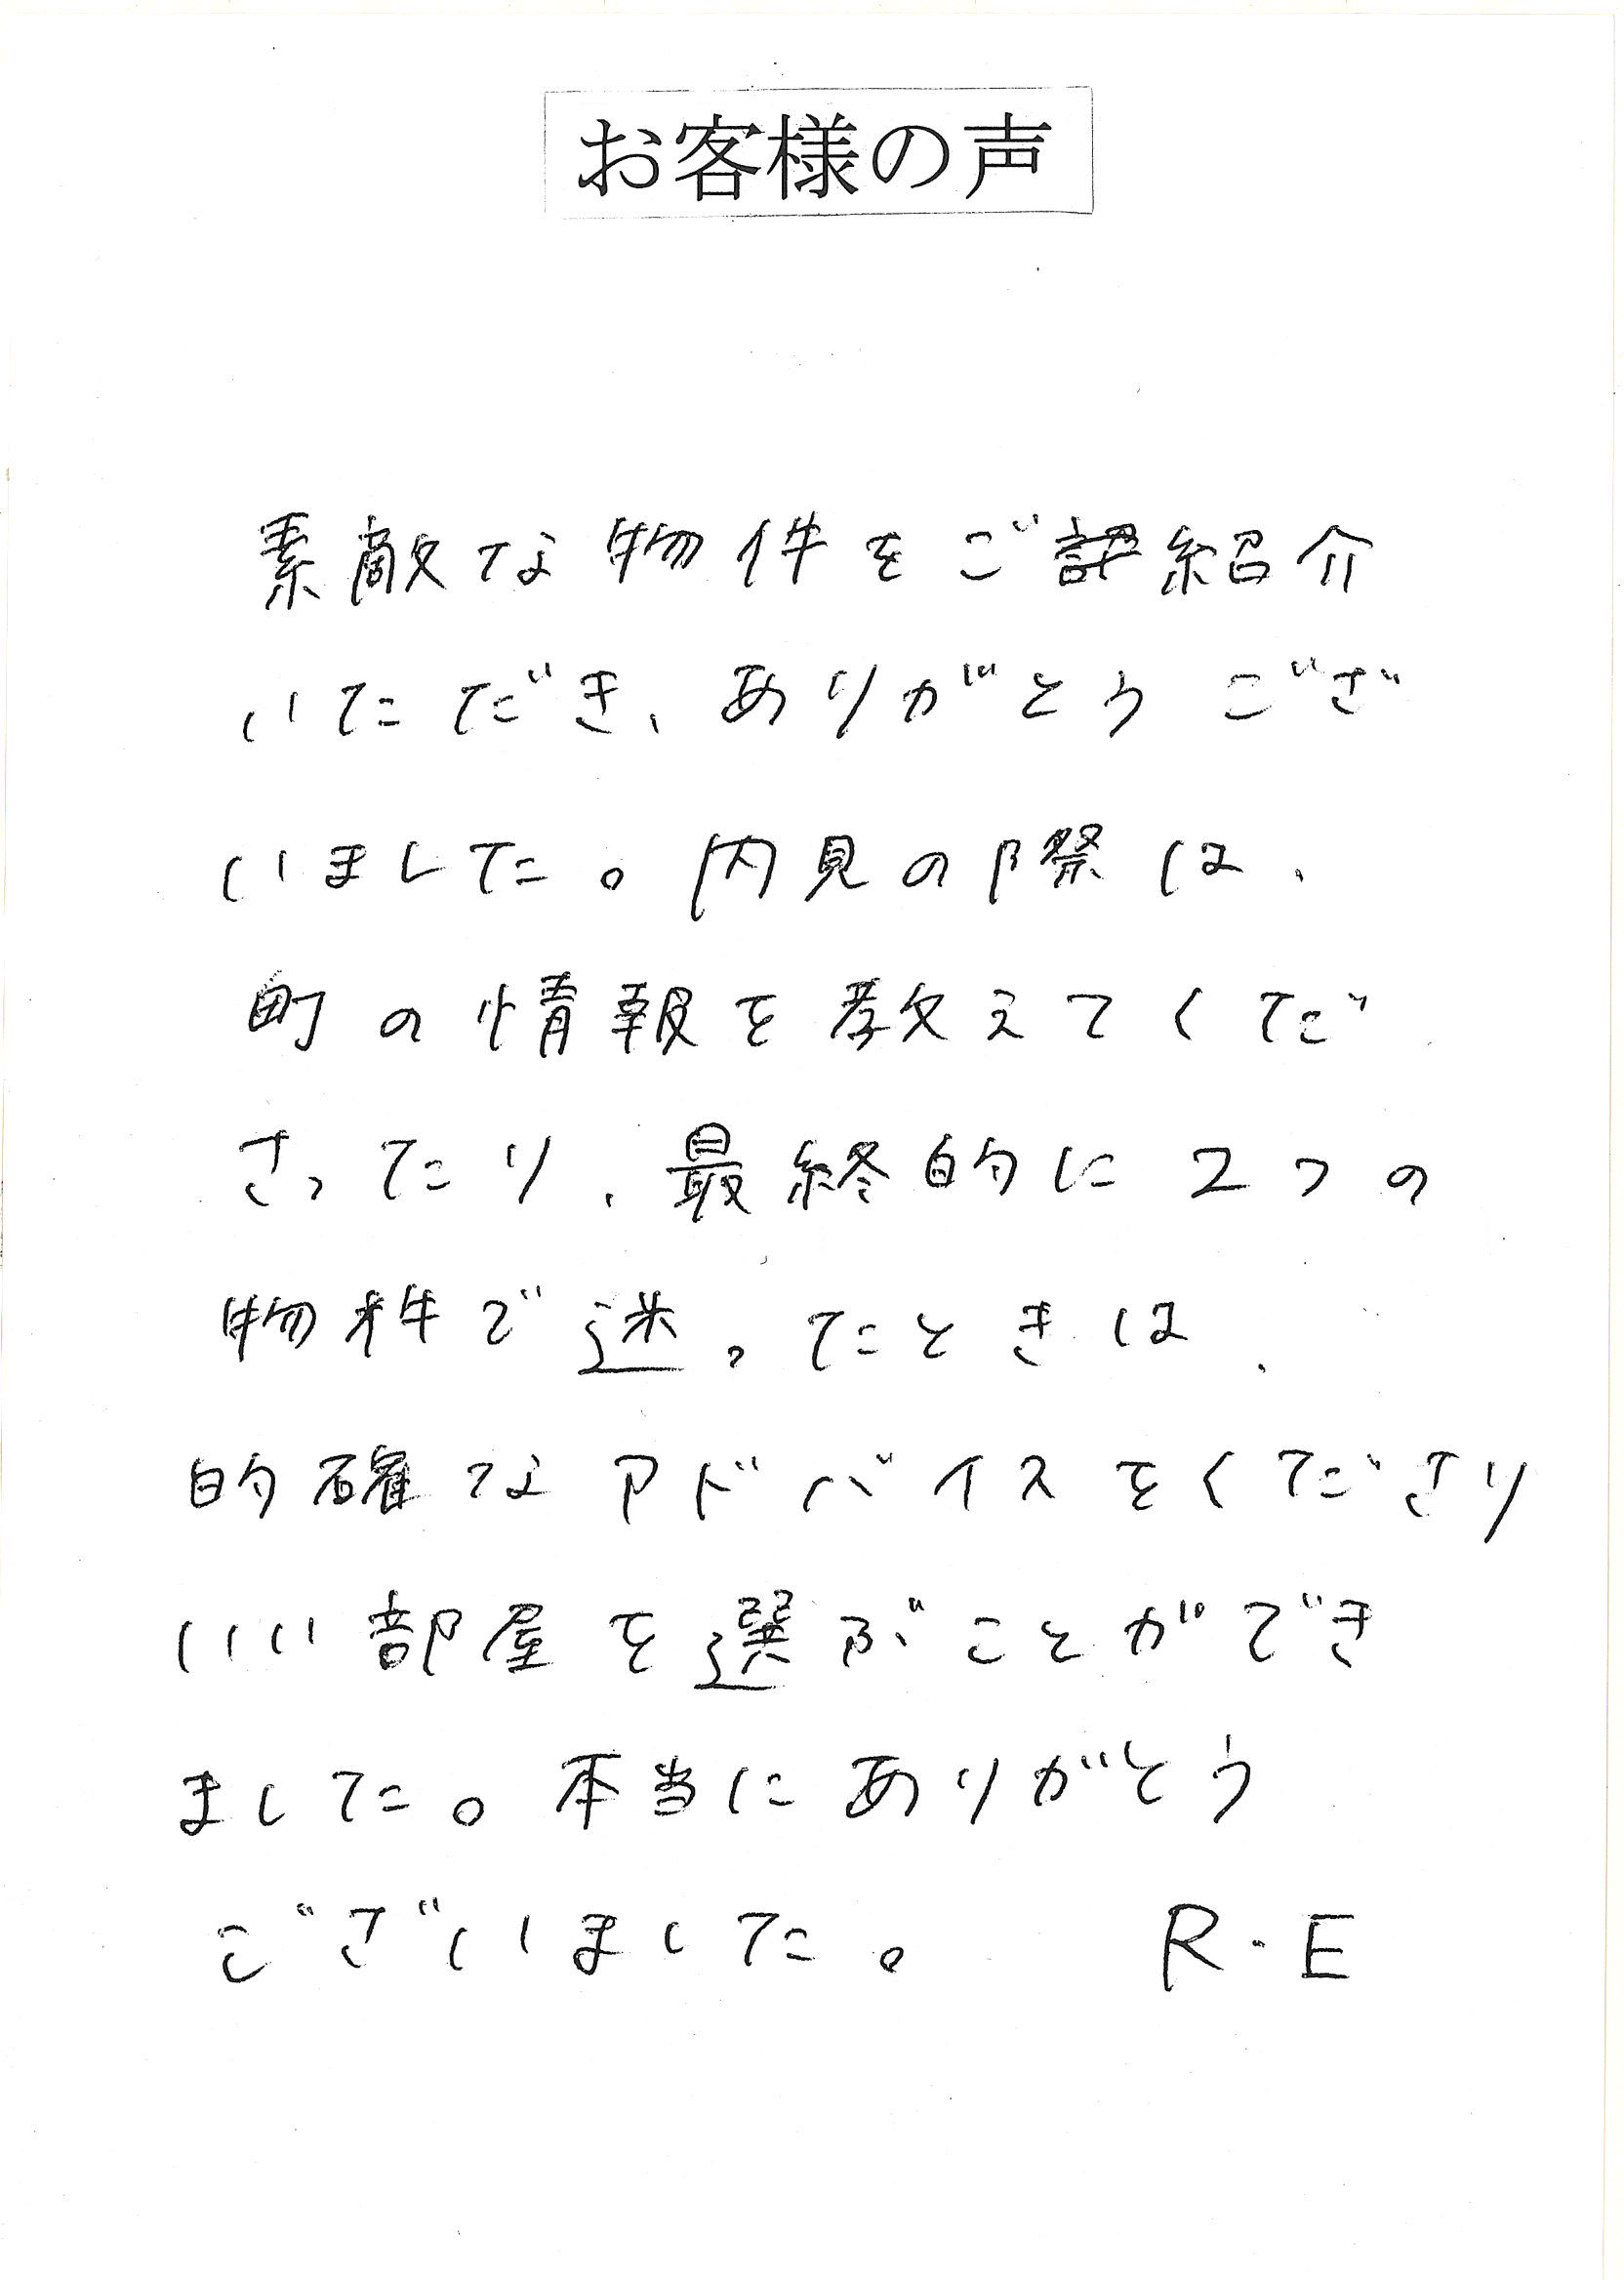 お客様の声
素敵な物件をご紹介
いただき、ありがとうござ
いました。内見の際は、
町の情報を教えてくだ
さったり、最終的に2つの
物件で迷ったときは、
的確なアドバイスをくださり
いい部屋を選ぶことができ
ました。本当にありがとう
ございました。 R・E